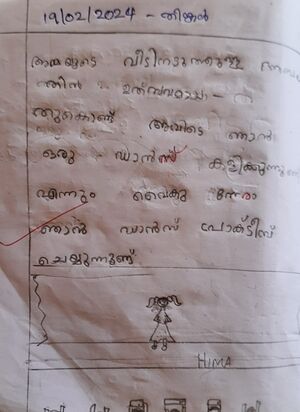 19/02/2024 - തിങ്കൾ
അമ്മയുടെ വീടിനടുത്തുള്ള
തിൽ ഉത്സവമായ - ത
തുകൊണ്ട് അവിടെ ഞാൻ
ഒരു ഡാൻസ് കളിക്കുന്നുണ്ട്
എന്നും വൈകു ന്നേരം
ഞാൻ ഡാൻസ് പ്രാക്ടീസ്
ചെയ്യുന്നുണ്ട്
HIMA